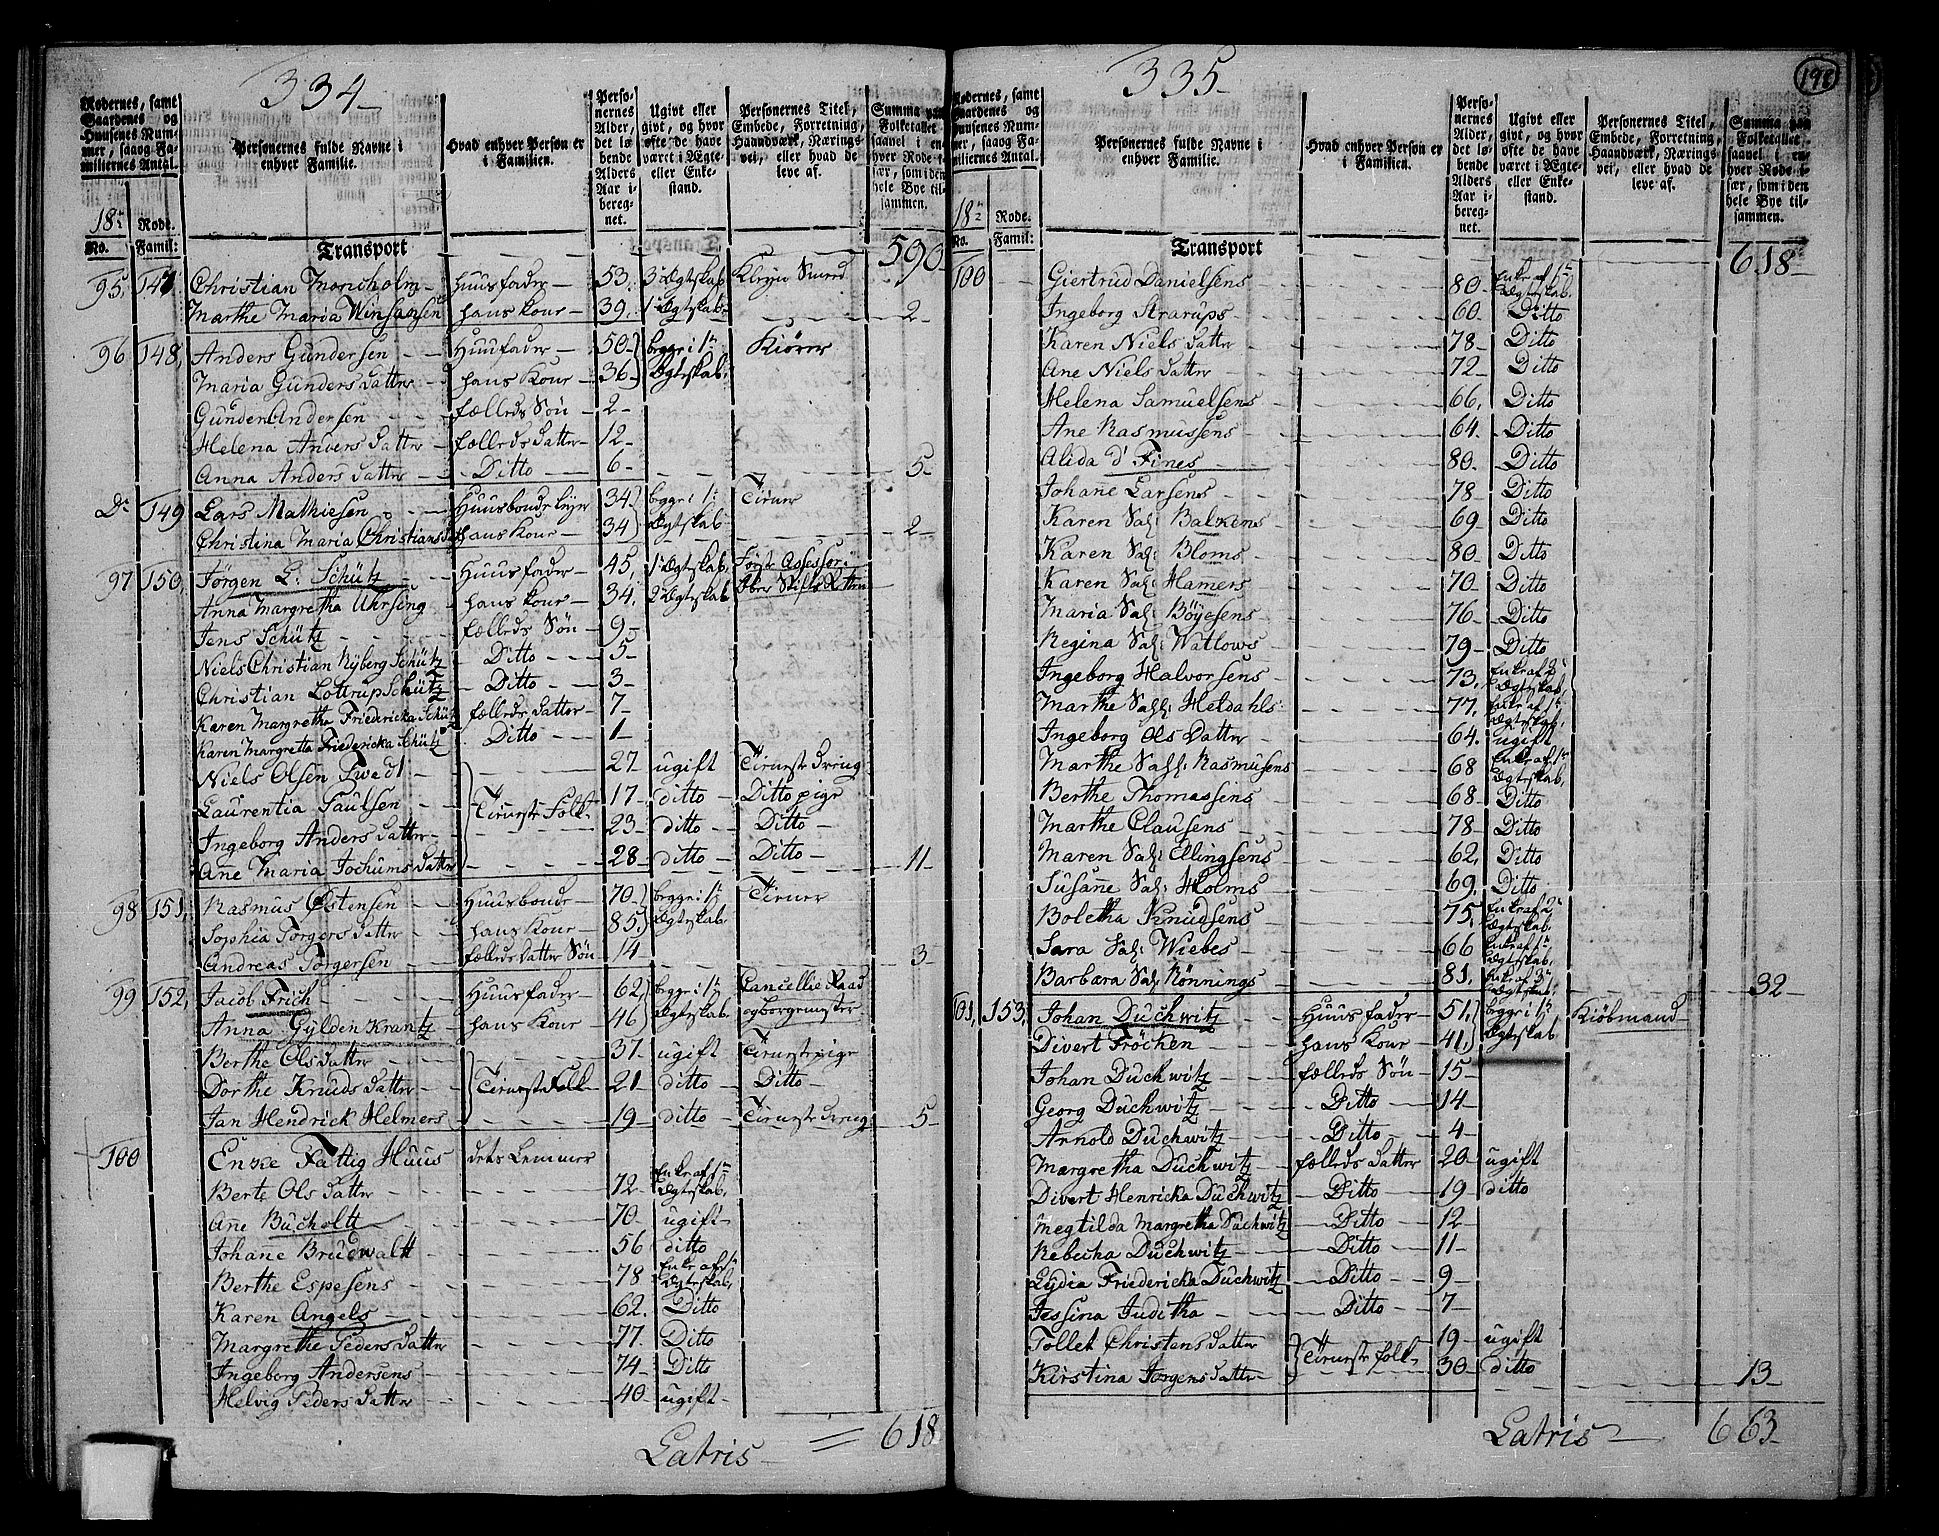 334
Rodernes, samt Gaardenes og Huusenes Nummer, saavog Familiernes Antal.
Personernes fulde Navne i enhver Familie.
Hvad enhver Person er i Familien.
Personernes Alder, det løbende Alders Aar iberegnet.
Ugivt eller givt, og hvor ofte de have været i Ægte- eller Enkestand.
Personernes Titel, Embede, Forretning, Haandværk, Næringsvei, eller hvad de leve af.
Summa paa Folketallet saavel i enhver Rode især, som i den hele Bye tilsammen.
18de Rode.
No. Famil:
Transport 590
95. 147 Christian Moricholm Huusfader 53. 3 Ægtskab
Marthe Maria Winsaasen hans Kone 39. 1 Ægtskab 2
96 148, Anders Gundersen Huusfader 50 begge i 1te Kiører
Maria Gunders Datter hans Kone 36 Ægteskab.
Gunder Andersen fælleds Søn 2
Helena Anders Datter fælleds Datter 12
Anna Anders Datter Ditto 6 5
Do 149 Lars Mathiesen 34 begge i 1te Tiener
Christina Maria Christians hans Kone 34 Ægteskab 2
97 150, Jörgen L: Schütz Huusfader 45, 1 Ægtskab,
Anna Margretha Uhrsing hans Kone 34. 2 Ægtskab
Jens Schütz fælleds Søn 9
Niels Christian Nyberg Schütz Ditto 5
Christian Lottrup Schütz Ditto 3
Karen Margretha Friedericka Schütz fælleds Datter 7
Karen Margretta Friedericka Schütz Ditto 1
Niels Olsen Twedt 27 ugift Tienste Dreng
Laurentia Paulsen Tieneste Folk 17 ditto Ditto pige
Ingeborg Anders Datter 23 ditto Ditto
Ane Maria Jochums Datter 28 ditto Ditto 11
98 151, Rasmus Østensen Huusbonde 70 begge i 1te Tiener
Sophia Torgers Datter hans Kone 85 Ægteskab
Andreas Torgersen fælleds Datter Søn 14 3
99 152, Jacob Frich Huusfader 62, begge i 1te Cancellie Raad
Anna Gyldenkrantz hans Kone 46 Ægteskab og borgemester
Berthe Ols Datter 37. ugift Tieneste pige
Dorthe Knuds Datter Tieneste Folk 21 ditto Ditto
Jan Hendrick Helmers 19 ditto Tieneste Dreng 5
100 Enke Fattig Huus dets Lemmer
Berte Ols Datter 72 Enke af 1te Ægteskab,
Ane Bucholtt 70. ugift
Johane Brudwaltt 56 ditto
Berthe Espesens 78 Enke af 1te Ægteskab,
Karen Angels 62. Ditto
Margrethe Peders Datter 77. Ditto
Ingeborg Andersens 74. Ditto
Helvig Peders Datter 40 ugift
Latris = 618
335
198
Rodernes, samt Gaardenes og Huusenes Nummer, saavog Familiernes Antal.
Personernes fulde Navne i enhver Familie.
Hvad enhver Person er i Familien.
Personernes Alder, det løbende Alders Aar iberegnet.
Ugivt eller givt, og hvor ofte de have været i Ægte- eller Enkestand.
Personernes Titel, Embede, Forretning, Haandværk, Næringsvei, eller hvad de leve af.
Summa paa Folketallet saavel i enhver Rode især, som i den hele Bye tilsammen.
18de Rode.
No. Famil:
Transport 618
100 Giertrud Danielsens 80 Enke af 1te Ægteskab.
Ingeborg Strarups 60 Ditto
Karen Niels Datter 78 Ditto
Ane Niels Datter 72 Ditto
Helena Samuelsens 66, Ditto
Ane Rasmussens 64. Ditto
Alida d' Fines 80. Ditto
Johane Larsens 78 Ditto
Karen Sal: Balkens 69 Ditto
Karen Sal: Bloms 80. Ditto
Karen Sal: Hamers 70. Ditto
Maria Sal: Böyesens 76 Ditto
Regina Sal: Watlows 79 Ditto
Ingeborg Halvorsens 73, Enke af 2de Ægteskab,
Marthe Sal: Heldahls 77. Enke af 1te Ægteskab,
Ingeborg Ols Datter 64. ugift
Marthe Sal: Rasmusens 68 Enke af 1te Ægteskab,
Berthe Thomassens 68 Ditto
Marthe Clausens 78 Ditto
Maren Sal: Ellingsens 62, Ditto
Susane Sal: Holms 69. Ditto
Boletha Knudsens 75, Enke af 2de Ægteskab.
Sara Sal: Wiebes 66 Enke af 1te Ægteskab.
Barbara Sal: Rönnings 81, Enke af 3de Ægteskab. 32
101, 153, Johan Duchwitz Huusfader 51, begge i 1te Kiöbmand
Divert Fröchen hans Kone 41. Ægteskab
Johan Duchwitz fælleds Søn 15
Georg Duchwitz Ditto 14
Arnold Duchwitz Ditto 4
Margretha Duchwitz fælleds Datter 20 ugift
Divert Henricka Duchwitz Ditto 19 ditto
Megtilda Margretha Duchwitz Ditto 12
Rebecha Duchwitz Ditto 11
Lydia Friedericka Duchwitz Ditto 9
Jessina Juditha Ditto 7
Tollet Christens Datter Tieneste folk 19 ugift
Kirstina Jørgens Datter 30 ditto 13
Latris 663